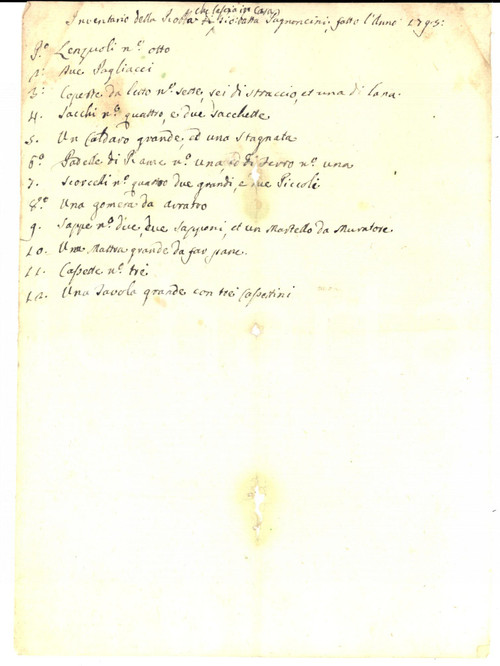 che lascia in Casa
Inventario della Scolastica Battista Sagnoncini, fatto l'Anno 1795:
1.º Lenzuoli n.º otto
2.º Due Pagliacci
3.º Coperte da letto n.º sette, sei di straccio, et una di lana.
4. Sacchi n.º quattro, e due sacchette
5. Un Caldaro grande, et una Stagnata
6.º Padelle di Rame n.º una, id di Ferro n.º una
7. Scorecchi n.º quattro due grandi, e due Piccoli
8.º Una gomera da aratro
9. Sappe n.º due, due Sapponi, et un Martello da Muratore.
10. Una Mattra grande da far pane.
11. Cassette n.º trei
12. Una Tavola grande con trei Cassettini